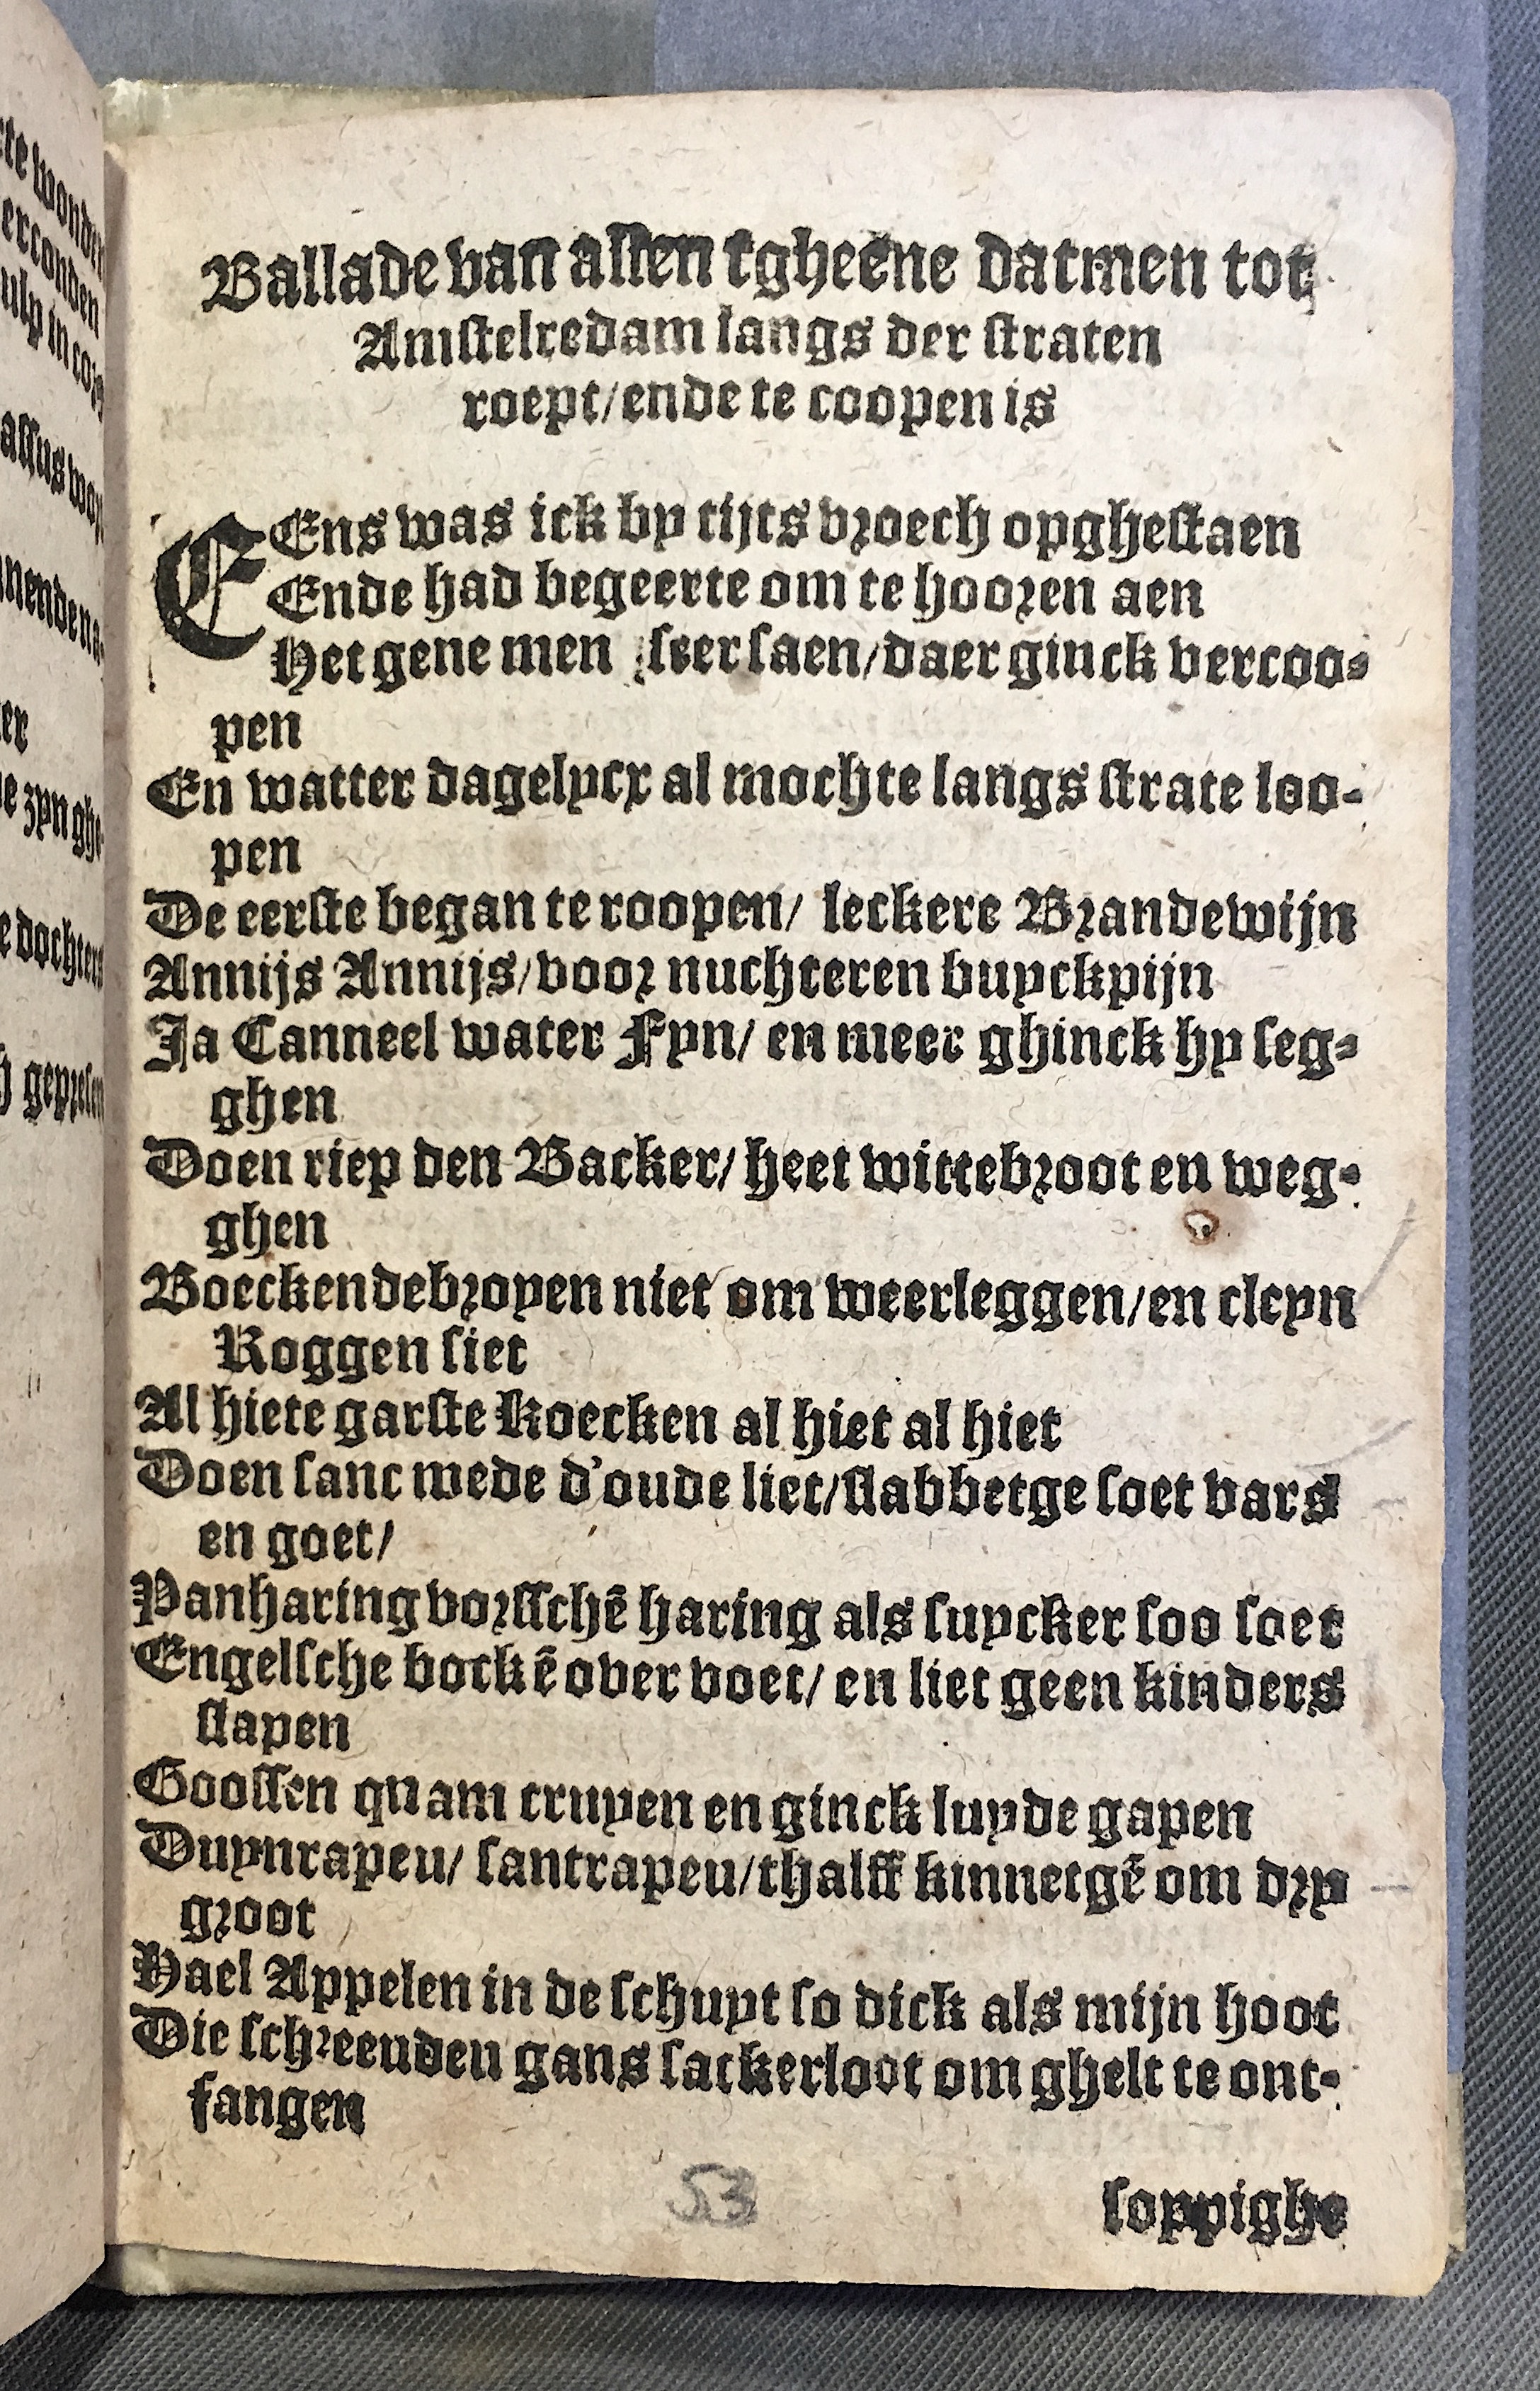 rte wonder
erconden
ulp in coje
assus wop
nnende na-
er
e zyn ghe-
e dochters
h gepresen
Ballade van allen tgheene datmen tot
Amstelredam langs der straten
roept/ ende te coopen is
EEns was ick by tijts vroech opghestaen
Ende had begeerte om te hooren aen
Het gene men seer saen/ daer ginck vercoo-
pen
En watter dagelycx al mochte langs strate loo-
pen
De eerste began te roopen/ leckere Brandewijn
Annijs Annijs/ voor nuchteren buyckpijn
Ja Canneel water Fyn/ en meer ghinck hy seg-
ghen
Doen riep den Backer/ heet wittebroot en weg-
ghen
Boeckendebroyen niet om weerleggen/ en cleyn
Roggen siet
Al hiete garste Koecken al hiet al hiet
Doen sanc mede d'oude liet/ slabbetge soet vars
en goet/
Panharing vorsschē haring als suycker soo soet
Engelsche bockē over voet/ en liet geen kinders
slapen
Goossen quam cruyen en ginck luyde gapen
Duynrapeu/ santrapeu/ thalff kinnetgē om dry
groot
Hael Appelen in de schuyt so dick als mijn hoot
Die schreeuden gans sackerloot om ghelt te ont-
fangen
53
soppighe